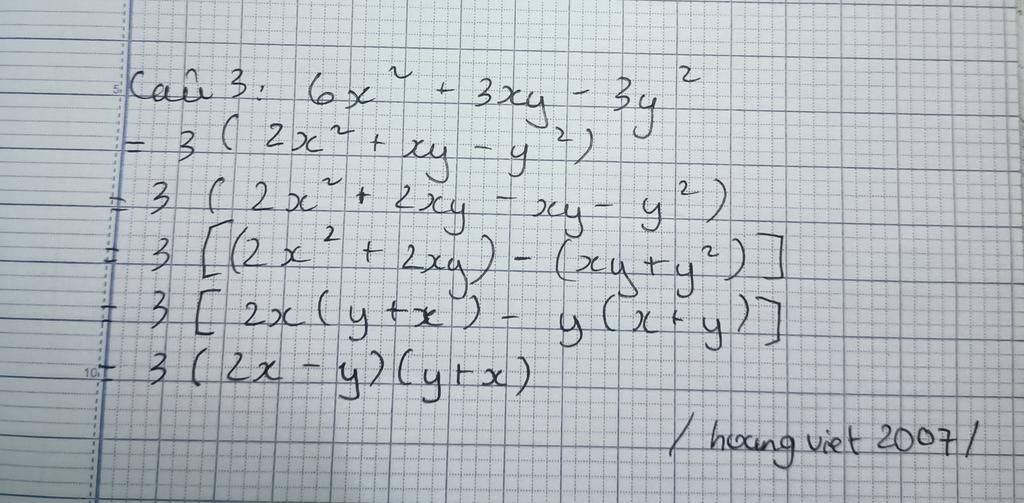 Câu 3: 6x² + 3xy - 3y²
= 3 ( 2x² + xy - y²)
= 3 ( 2x² + 2xy - xy - y²)
= 3 [(2x² + 2xy) - (xy + y²)]
= 3 [ 2x (y + x) - y (x + y)]
= 3 ( 2x - y) (y + x)
/ hoang viet 2007 /